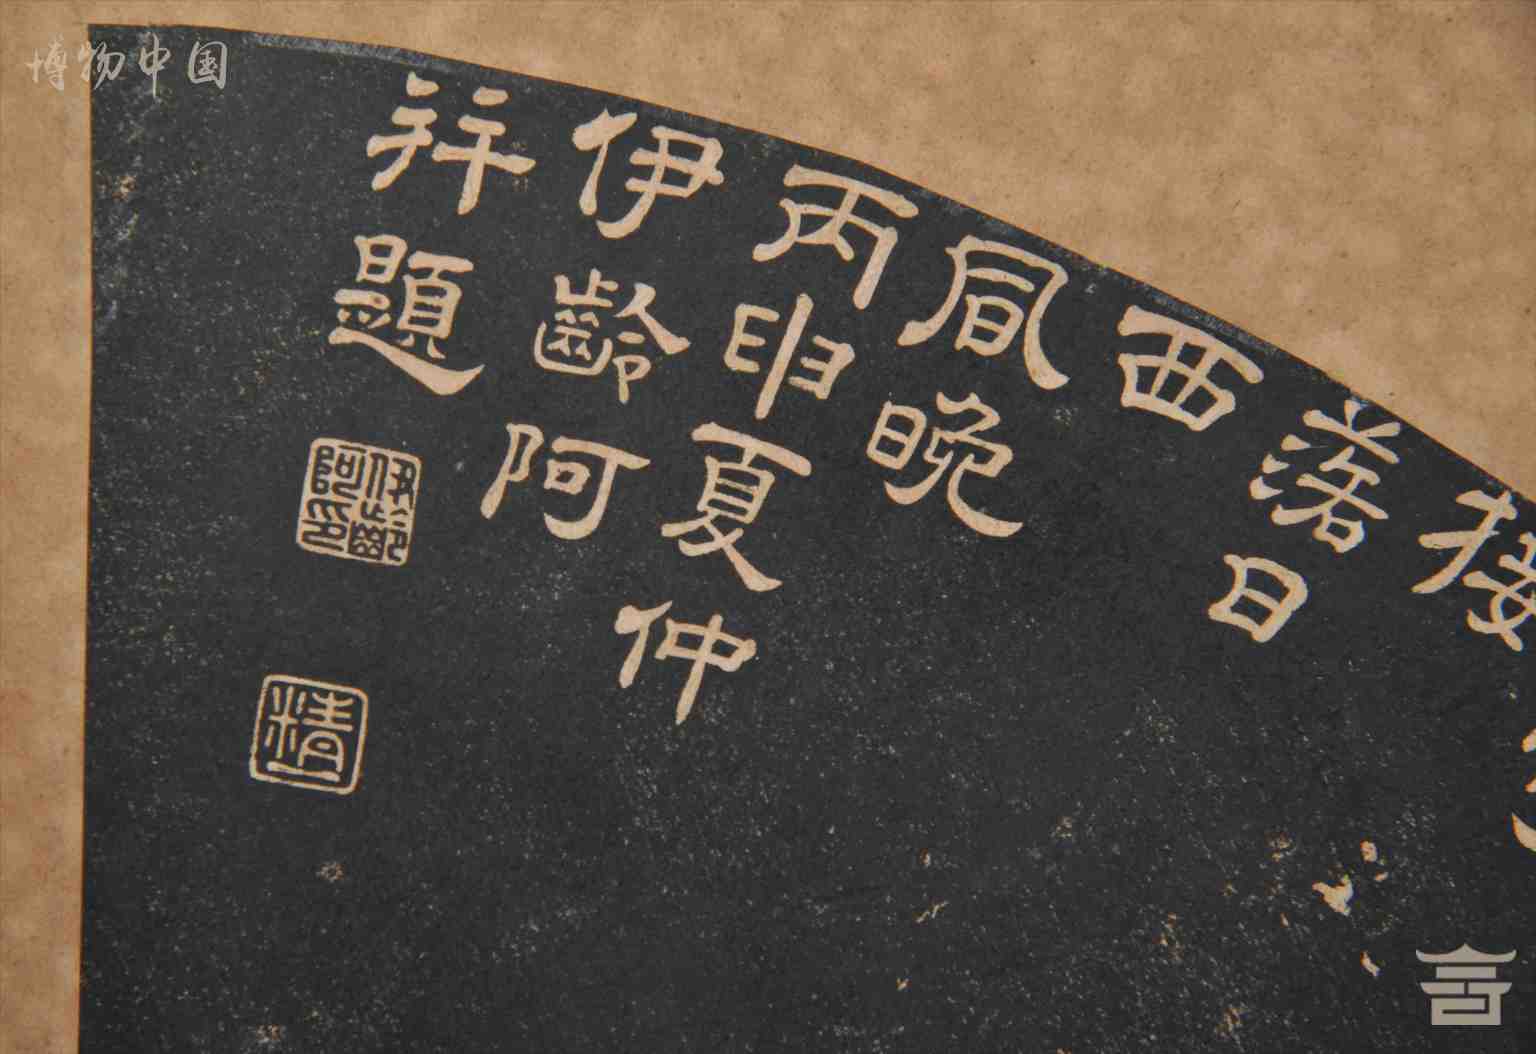 博物中国
接
落日
西
凬晚
丙申夏仲
伊齡阿
幷題
伊齡阿印
精一